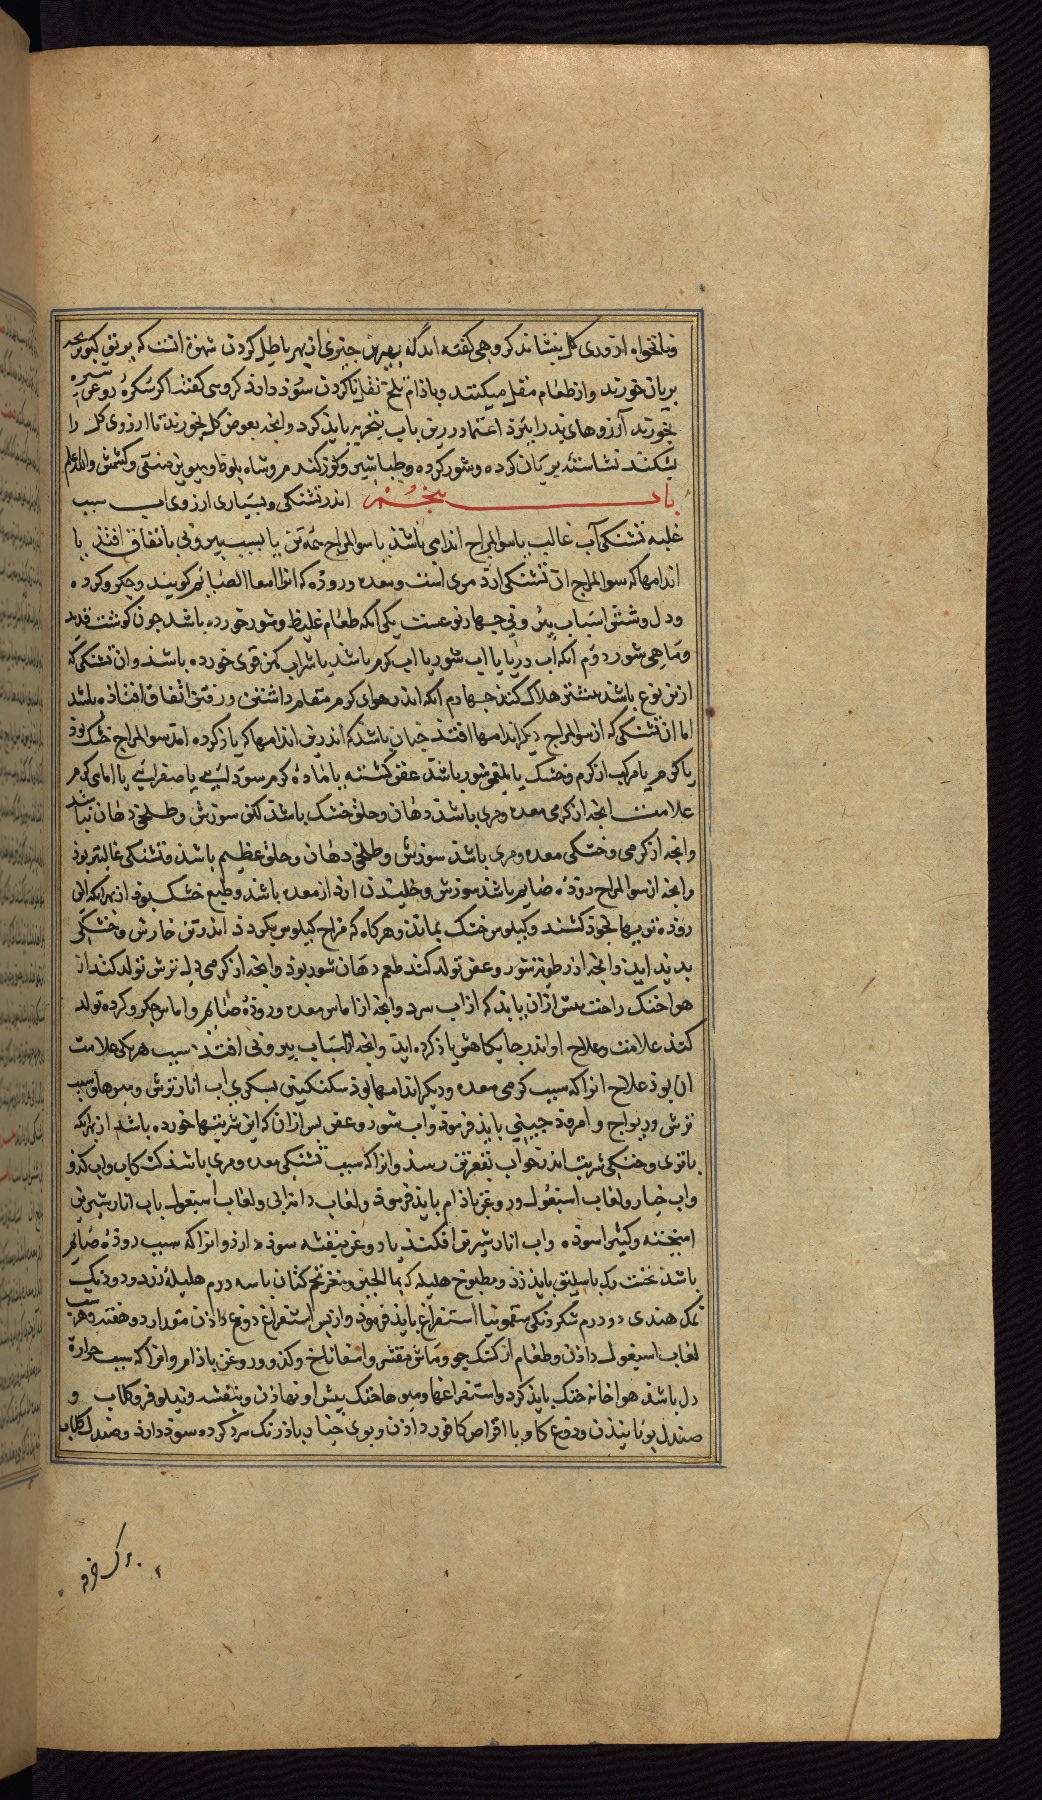 ونانخواه ارزوی کل بنشاند کروهی کفته اند که بهترین چیزی از بهر باطل کردن شهوة انست که
بریان خورند واز طعام منقل میکنند وباذام تلخ تنقل ناکردن سوذ دارذ کروهی کفتند اکر سکره روغن شیره
بخورند آرزوهای بد را ببرذ اعتماد درین باب بتجربه بایذ کرد وانچه بعوض کل بخورند تا ارزوی کل را
بشکند نشاسته بریان کرده وشور کرده وطباشیر وکوز کندم وشاه بلوط ومویز منقی وکشمش والله اعلم
باب پنجم اندر تشنکی وبسیاری ارزوی اب سبب
غلبه تشنکی آب غالب یا سوالمزاج اندامی باشذ یا سوالمزاج همه تن یا بسبب بیرونی باتفاق افتذ یا
اندامها که سوالمزاج ان تشنکی ارذ مری است ومعده وروذه که انرا امعاء الصایم کویند وجکر وکرده
ودل وشش اسباب بیرونی چهار نوعست یکی انکه طعام غلیظ وشور خورده باشد چون کوشت قدید
وماهی شور دوم انکه اب دریا یا اب شور یا اب کرم باشد یا شراب کهن قوی خورده باشذ وان تشنکی که
ازین نوع باشذ بیشتر هلاک کند چهارم انکه اندر هوای کرم مقام داشتن ورفتن اتفاق افتاذه باشد
اما ان تشنکی که از سوالمزاج دیکر اندامها افتذ چنان باشذ که اندرین اندامها که یاذ کرده امذ سوالمزاج خشک بوذ
یا کرم یا مرکب از کرم وخشک یا بلغمی شور باشذ عفن کشته یا ماده کرم سودایی یا صفرایی یا اماسی کرم
علامت انچه از کرمی معده ومری باشذ دهان وحلق خشک باشذ لکن سوزش وطلخی دهان نباشد
وانچه از کرمی وخشکی معده ومری باشذ سوزش وطلخی دهان وحلق عظیم باشذ وتشنکی غالبتر بوذ
وانچه از سوالمزاج روذه صایم باشذ سوزش وخلیدن ارذ از معده باشذ وطبع خشک بوذ از بهر انکه این
روذه تریها بخوذ کشند وکیلوس خشک بماند وهرکاه که مزاج کیلوس بکردذ اندر تن خارش وخشکی
بدید اید وانچه از رطوبة شور وعفن تولد کند طعم دهان شور بوذ وانچه از کرمی دل وشش تولد کند از
هوا خنک راحت بیش ازان یابذ که از اب سرد وانچه از اماس معده وروذه صایم واماس جکر وکرده تولد
کند علامت وعلاج او اندر جایکاهش یاذ کرده اید وانچه از اسباب بیرونی افتذ سبب هر یکی علامت
ان بوذ علاج انرا که سبب کرمی معده ودیکر اندامها بوذ سکنکبین بسکری اب انار ترش ومیوهای سیب
ترش وریواج وامروذ چینی بایذ فرموذ واب شور وعفن پس ازان که این شربتها خورده باشد از بهر انکه
باتری وخنکی شربتها اندر خواب بقعر تن رسذ وانرا که سبب تشنکی معده ومری باشذ کشکاب واب کذو
واب خیار ولعاب اسبغول وروغن باذام بایذ فرموذ ولعاب دانه ابی ولعاب اسبغول باب انار شیرین
امیخته وکتیرا سوذه واب انار شیرین افکنده با روغن بنفشه سوذ دارذ وانرا که سبب روذه صایم
باشد نخست رک باسلیق بایذ زذ ومطبوخ هلیله که بماء الجبن ومغز تخم کتان با سه درم هلیله زرد ودودنیک
نمک هندی دو درم شکر ودنکی سقمونیا استفراغ بایذ فرموذ واز پس استفراغ دوغ داذن مقدار دو هفته
لعاب اسبغول داذن وطعام از کشک جو وماش مقشر واسفاناخ وکذو وروغن باذام وانرا که سبب حرارة
دل باشذ هوا خانه خنک بایذ کرد واستفراغها ومیوها خنک پیش او نهاذن وبنفشه ونیلوفر وکلاب و
صندل بویانیذن ودوغ کاو با اقراص کافور داذن وبوی خیار باذرنک سرد کرده سوذ دارذ وصندل کلاب
برک خرفه